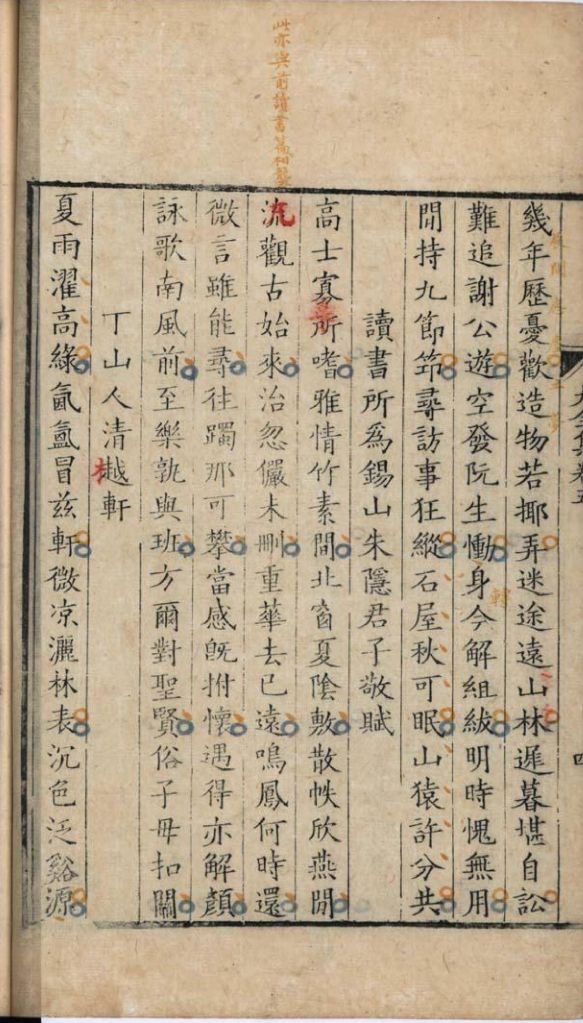 此亦與前讀書篇相發
幾年歷憂歡造物若揶弄迷途遠山林遲暮堪自訟
難追謝公遊空發阮生慟身今解組紱明時愧無用
閒持九節笻尋訪事狂縱石屋秋可眠山猿許分共
讀書所為錫山朱隱君子敬賦
高士寡所嗜雅情竹素間北窗夏陰敷散帙欣燕閒
流觀古始來治忽儼未刪重華去已遠鳴鳳何時還
微言雖能尋往躅那可攀當感旣拊懷遇得亦解顏
詠歌南風前至樂孰與班方爾對聖賢俗子毋扣關
丁山人清樾軒
夏雨濯高綠氤氳冒茲軒微凉灑林表沉色泛谿源